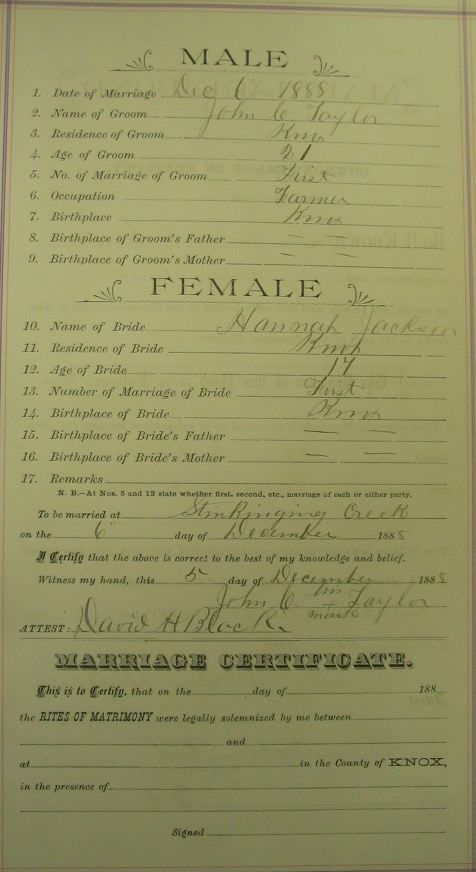 MALE
1. Date of Marriage Dec 6" 1888
2. Name of Groom John C. Taylor
3. Residence of Groom Knox
4. Age of Groom 21
5. No. of Marriage of Groom First
6. Occupation Farmer
7. Birthplace Knox
8. Birthplace of Groom's Father
9. Birthplace of Groom's Mother — —
FEMALE
10. Name of Bride Hannah Jackson
11. Residence of Bride Knox
12. Age of Bride 17
13. Number of Marriage of Bride First
14. Birthplace of Bride Knox
15. Birthplace of Bride's Father — —
16. Birthplace of Bride's Mother — —
17. Remarks
N. B.—At Nos. 5 and 13 state whether first, second, etc., marriage of each or either party.
To be married at Creek
on the 6" day of December 1888
I Certify that the above is correct to the best of my knowledge and belief.
Witness my hand, this 5 day of December 1888
John C. his Taylor
mark
ATTEST: David H Black
MARRIAGE CERTIFICATE.
This is to Certify, that on the day of 188
the RITES OF MATRIMONY were legally solemnized by me between
and
at in the County of KNOX,
in the presence of
Signed